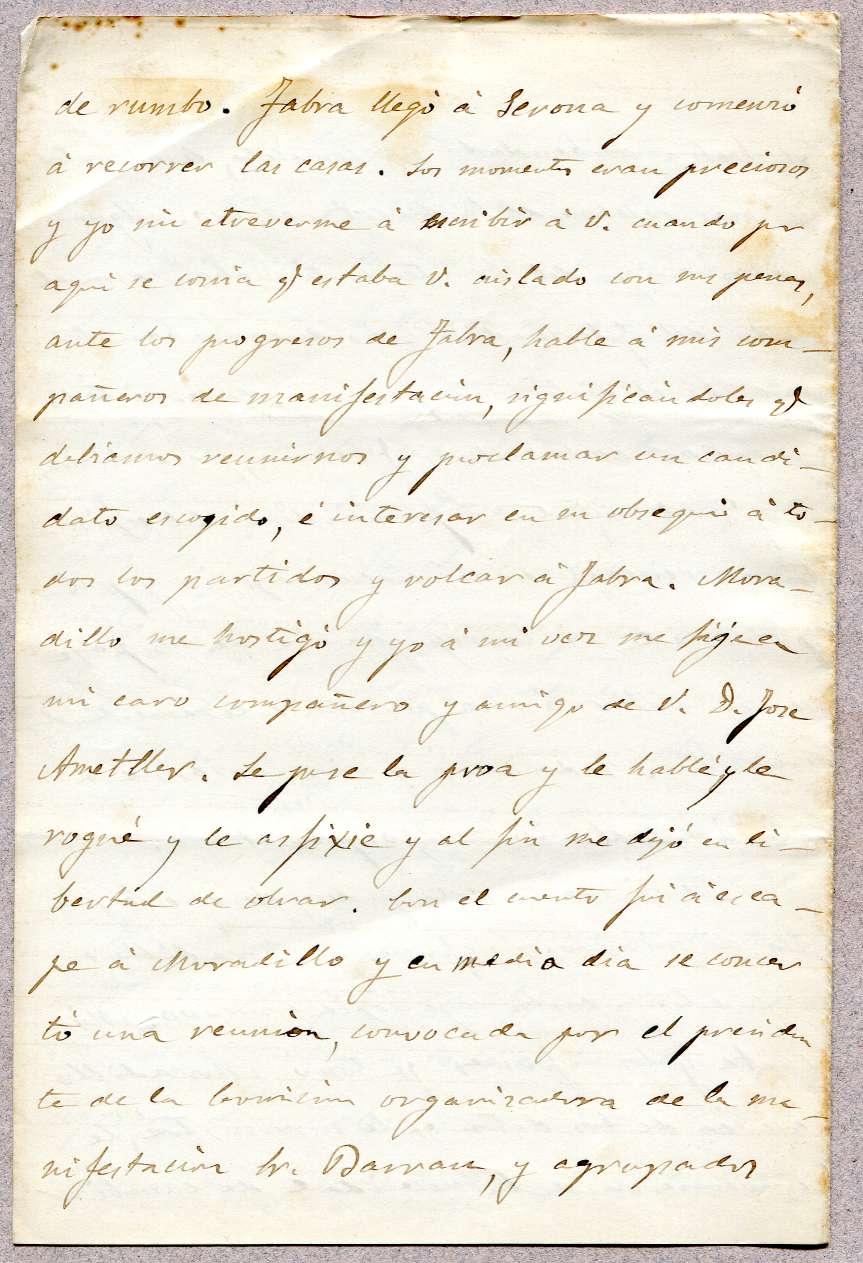 de rumbo. Fabra llegó à Gerona y comenzó
à recorrer las casas. Los momentos eran preciosos
y yo sin atreverme à escribir à V. cuando por
aqui se corria q.e estaba V. aislado con sus penas,
ante los progresos de Fabra, hable à mis com-
pañeros de manifestacion, significandoles q.e
debiamos reunirnos y proclamar un candi-
dato escogido, é interesar en su obsequio à to-
dos los partidos y volcar à Fabra. Mora-
dillo me hostigó y yo à mi vez me fije en
mi caro compañero y amigo de V. D. Jose
Ametller. Le puse la proa y le hablé y le
rogué y le asfixie y al fin me dejó en li-
bertad de obrar. Con el cuento fui à esca-
pe à Moradillo y en medio dia se concer
tó una reunion, convocada por el presiden
te de la Comision organizadora de la ma-
nifestacion Sr. Barrau, y agrupados